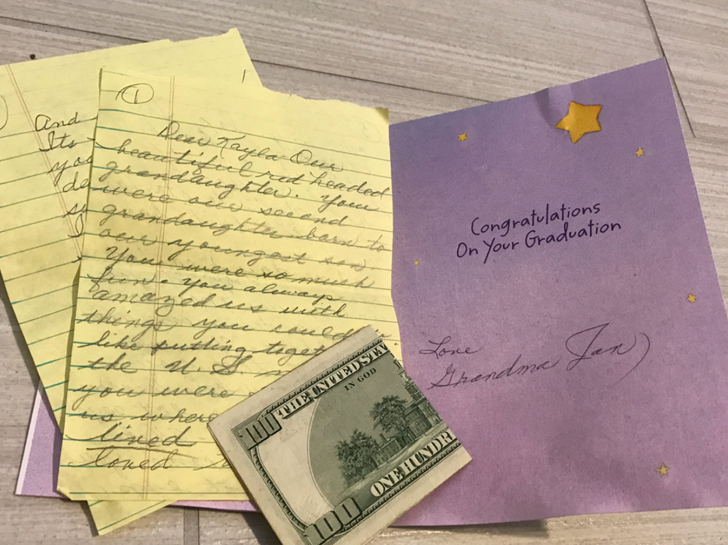 1
And
Its
you
1
Dear Kayla Our
beautiful red headed
grandaughter. You
were our second
grandaughter born to
our youngest son
You were so much
fun. You always
amazed us with
things you could
like putting toget
the U.S
you were
us where
lived
loved
Congratulations
On Your Graduation
Love
Grandma Jan
100
THE UNITED STA
IN GOD
ONE HUNDR
100